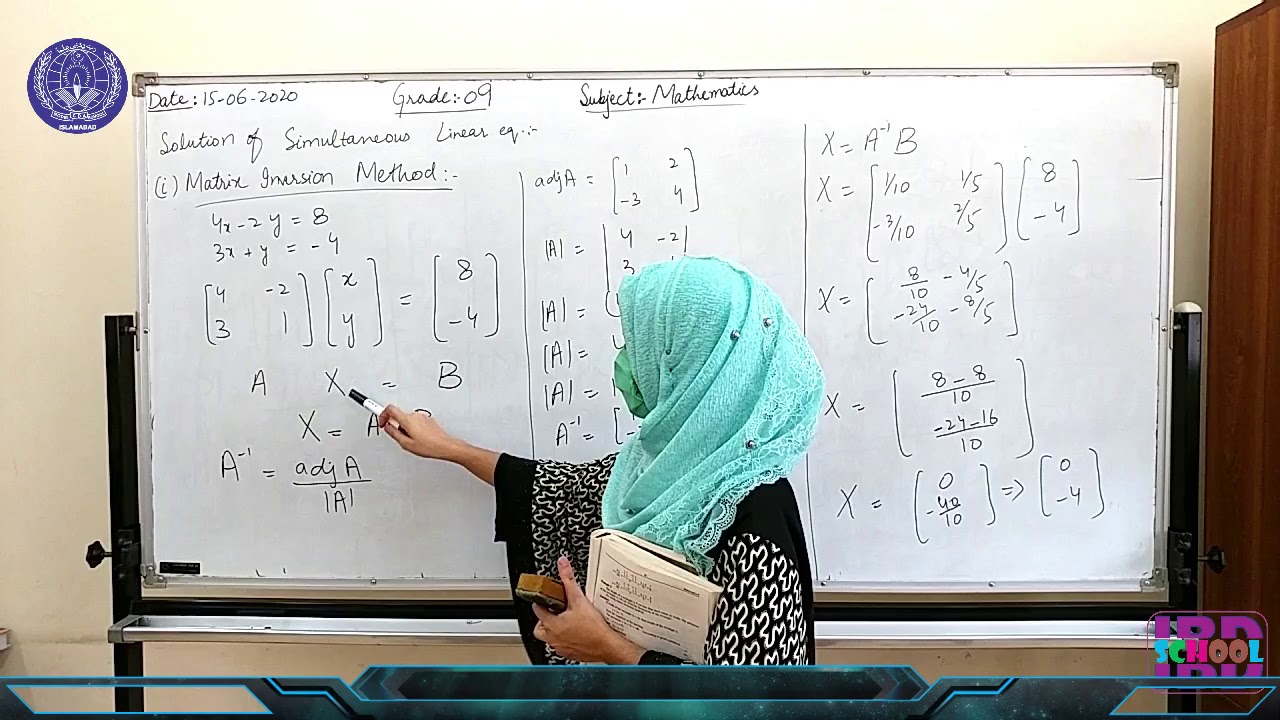 ISLAMABAD
Date: 15-06-2020 Grade:- 09 Subject:- Mathematics
Solution of Simultaneous Linear eq.:-
(i) Matrix Inversion Method:-
4x - 2y = 8
3x + y = -4
[4 -2] [x] = [8]
[3 1] [y] [-4]
A X = B
X = A
A⁻¹ = adj A
|A|
adj A = [1 2]
[-3 4]
|A| = |4 -2|
3
|A| =
|A| =
|A| =
A⁻¹ =
X = A⁻¹ B
X = [1/10 1/5] [8]
[-3/10 2/5] [-4]
X = [8/10 - 4/5]
[-24/10 - 8/5]
X = [8 - 8 / 10]
[-24 - 16 / 10]
X = [0] => [0]
[-40/10] [-4]
IBD
SCHOOL